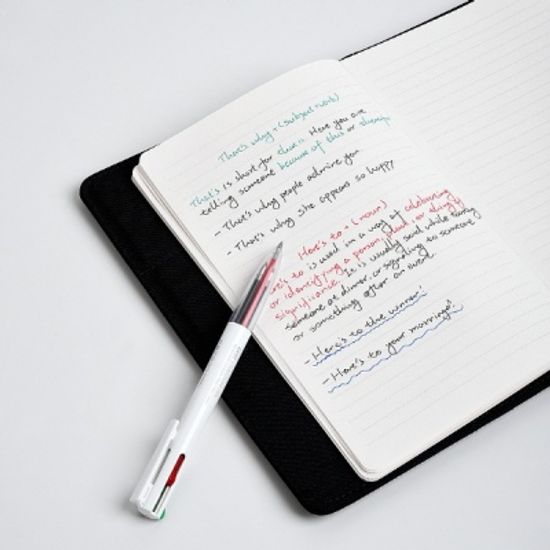 That's why + (subject + verb)
That's is short for that is. Here you are
telling someone because of this or therefore
- That's why people admire you.
- That's why she appears so happy
Here's to + (noun)
Here's to is used in a way of celebrating
or identifying a person, place, or thing's
significance. It is usually said while toasting
someone at dinner, or signaling to someone
or something after an event.
- Here's to the winner!
- Here's to your marriage!